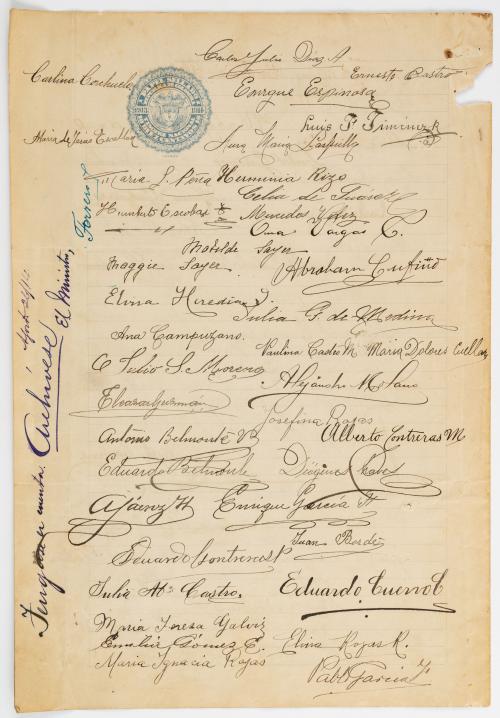 Carlos Julio Díaz A
Carlina Cochuelo
Ernesto Castro
Enrque Espinosa
Luis F Jiminez R
María de Jesús Escallón
Aura María
María L. Peña Herminia Rizo
Celia de Suárez
Humberto Escobar
Mercedes
Ana Vargas C.
Matilde Sayer
Maggie Sayer
Abraham Cufiño
Elina Heredia J.
Julia G. de Medina
Ana Campuzano.
Paulina Castro M
Maria Dolores Cuellar
C Julio S. Moreno
Alejandro M. Cano
Eleazar Guzmán
Josefina Rojas
Antonio Belmonte
Alberto Contreras M
Eduardo Belmonte
Diógenes Chaves
Enrique García H
Juan
Eduardo Contreras P
Julia Ma Castro.
Eduardo Cuervo C
María Teresa Galvis
Emilia Gómez E.
Elina Rojas R.
María Ignacia Rojas
Pablo García
Téngase en cuenta. Archívese
El Ministro,
Forero